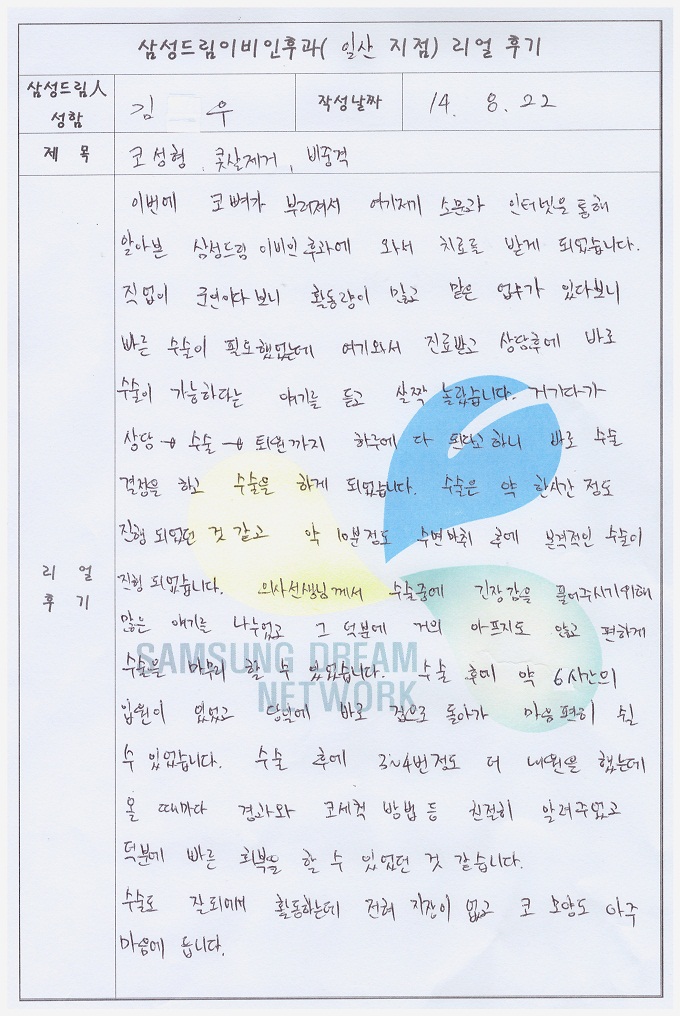 삼성드림이비인후과( 일산 지점) 리얼 후기
삼성드림人 성함
김 우
작성날짜
14. 8. 22
제 목
코성형, 콧살제거, 비중격
리 얼
후 기
이번에 코뼈가 부러져서 여기저기 소문과 인터넷을 통해
알아본 삼성드림 이비인후과에 와서 치료를 받게 되었습니다.
직업이 군인이다 보니 활동량이 많고 맡은 업무가 있다보니
빠른 수술이 필요했었는데 여기와서 진료받고 상담후에 바로
수술이 가능하다는 얘기를 듣고 살짝 놀랐습니다. 거기다가
상담 → 수술 → 퇴원까지 하루에 다 된다고 하니 바로 수술
결정을 하고 수술을 하게 되었습니다. 수술은 약 한시간 정도
진행 되었던 것 같고 약 10분정도 수면마취 후에 본격적인 수술이
진행 되었습니다. 의사선생님께서 수술중에 긴장감을 풀어주시기위해
많은 얘기를 나누었고 그 덕분에 거의 아프지도 않고 편하게
수술을 마무리 할 수 있었습니다. 수술 후에 약 6시간의
입원이 있었고 당일에 바로 집으로 돌아가 마음편히 쉴
수 있었습니다. 수술 후에 3~4번정도 더 내원을 했는데
올 때마다 경과와 코세척 방법 등 친절히 알려주었고
덕분에 빠른 회복을 할 수 있었던 것 같습니다.
수술도 잘되어서 활동하는데 전혀 지장이 없고 코 모양도 아주
마음에 듭니다.
SAMSUNG DREAM
NETWORK